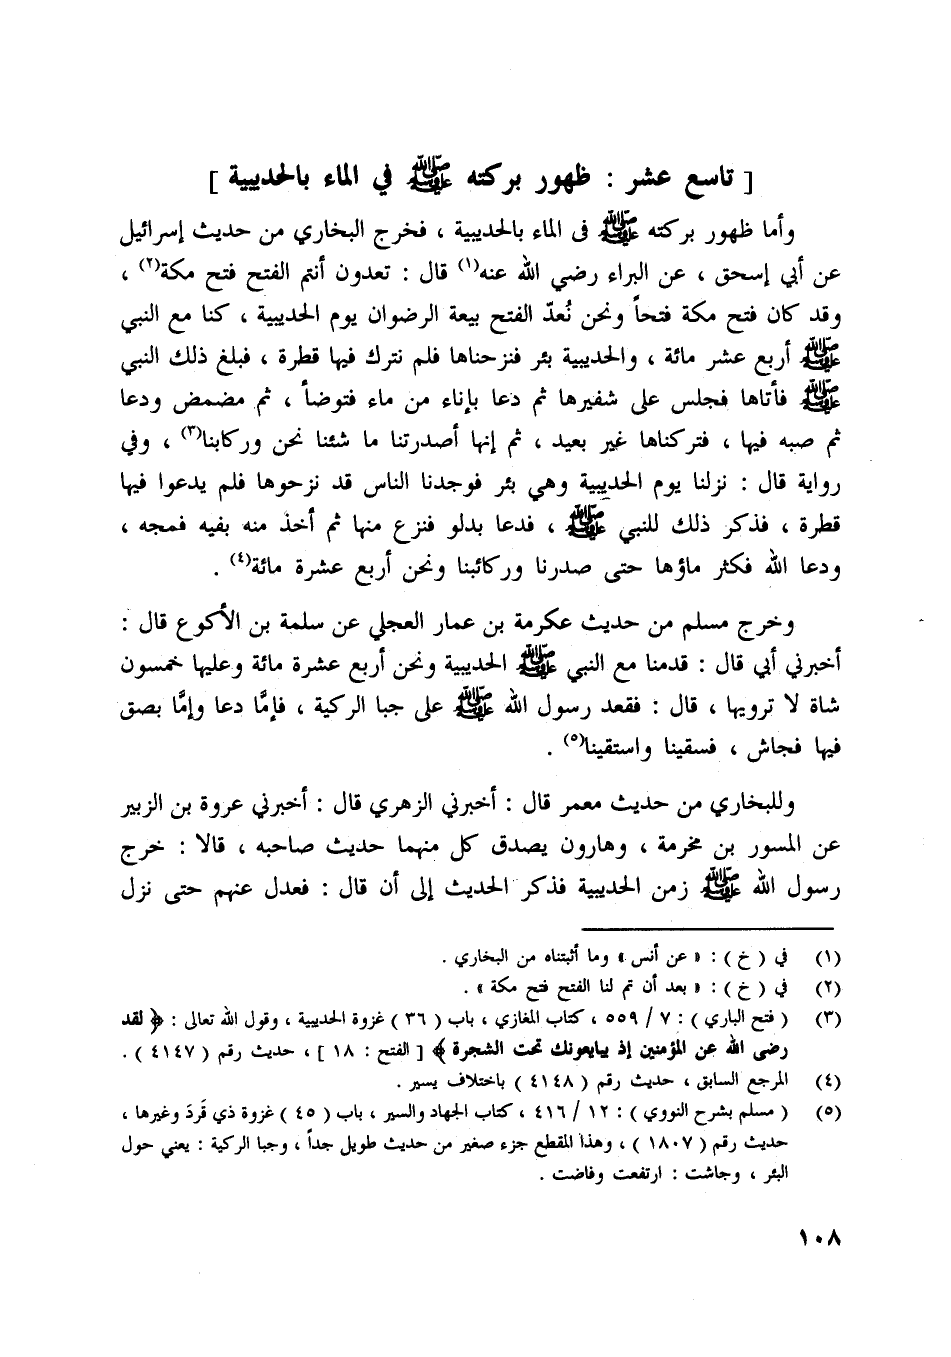 [ تاسع عشر : ظهور بركته ﷺ في الماء بالحديبية ]
وأما ظهور بركته ﷺ فى الماء بالحديبية ، فخرج البخاري من حديث إسرائيل
عن أبي إسحق ، عن البراء رضي الله عنه(١) قال : تعدون أنتم الفتح فتح مكة(٢) ،
وقد كان فتح مكة فتحاً ونحن نُعدّ الفتح بيعة الرضوان يوم الحديبية ، كنا مع النبي
ﷺ أربع عشر مائة ، والحديبية بئر فنزحناها فلم نترك فيها قطرة ، فبلغ ذلك النبي
ﷺ فأتاها فجلس على شفيرها ثم دعا بإناء من ماء فتوضأ ، ثم مضمض ودعا
ثم صبه فيها ، فتركناها غير بعيد ، ثم إنها أصدرتنا ما شئنا نحن وركابنا(٣) ، وفي
رواية قال : نزلنا يوم الحديبية وهي بئر فوجدنا الناس قد نزحوها فلم يدعوا فيها
قطرة ، فذكر ذلك للنبي ﷺ ، فدعا بدلو فنزع منها ثم أخذ منه بفيه فمجه ،
ودعا الله فكثر ماؤها حتى صدرنا وركائبنا ونحن أربع عشرة مائة(٤) .
وخرج مسلم من حديث عكرمة بن عمار العجلي عن سلمة بن الأكوع قال :
أخبرني أبي قال : قدمنا مع النبي ﷺ الحديبية ونحن أربع عشرة مائة وعليها خمسون
شاة لا ترويها ، قال : فقعد رسول الله ﷺ على جبا الركية ، فإمَّا دعا وإمَّا بصق
فيها فجاش ، فسقينا واستقينا(٥) .
وللبخاري من حديث معمر قال : أخبرني الزهري قال : أخبرني عروة بن الزبير
عن المسور بن مخرمة ، وهارون يصدق كل منهما حديث صاحبه ، قالا : خرج
رسول الله ﷺ زمن الحديبية فذكر الحديث إلى أن قال : فعدل عنهم حتى نزل
(١) في ( خ ) : « عن أنس » وما أثبتناه من البخاري .
(٢) في ( خ ) : « بعد أن تم لنا الفتح فتح مكة » .
(٣) ( فتح الباري ) : ٧ / ٥٥٩ ، كتاب المغازي ، باب ( ٣٦ ) غزوة الحديبية ، وقول الله تعالى : ﴿ لقد
رضى الله عن المؤمنين إذ يبايعونك تحت الشجرة ﴾ [ الفتح : ١٨ ] ، حديث رقم ( ٤١٤٧ ) .
(٤) المرجع السابق ، حديث رقم ( ٤١٤٨ ) باختلاف يسير .
(٥) ( مسلم بشرح النووي ) : ١٢ / ٤١٦ ، كتاب الجهاد والسير ، باب ( ٤٥ ) غزوة ذي قَردَ وغيرها ،
حديث رقم ( ١٨٠٧ ) ، وهذا المقطع جزء صغير من حديث طويل جداً ، وجبا الركية : يعني حول
البئر ، وجاشت : ارتفعت وفاضت .
١٠٨